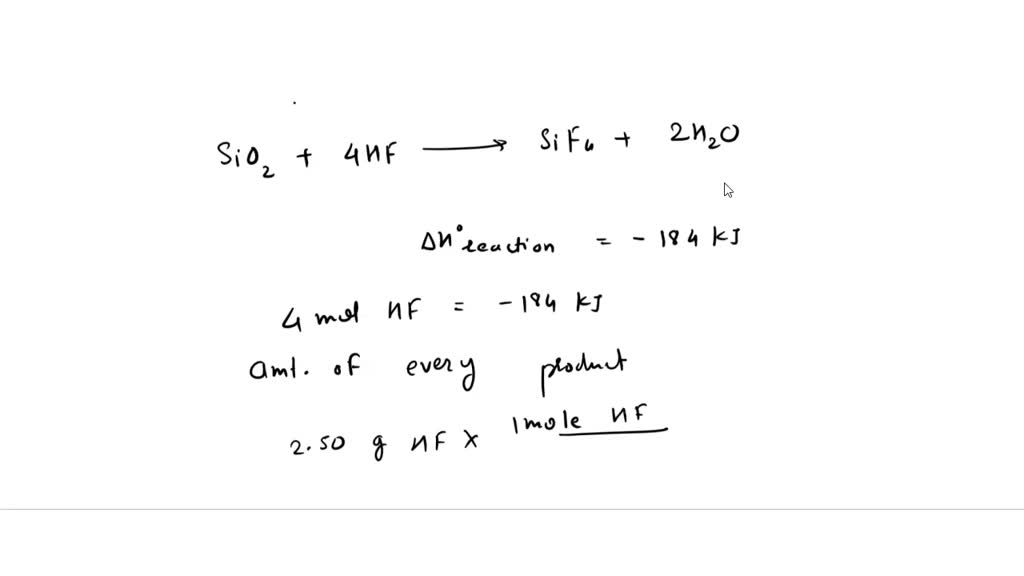 SiO₂ + 4HF ⟶ SiF₄ + 2H₂O
ΔH° reaction = - 184 kJ
4 mol HF = - 184 kJ
amt. of every product
2.50 g HF × 1 mole HF